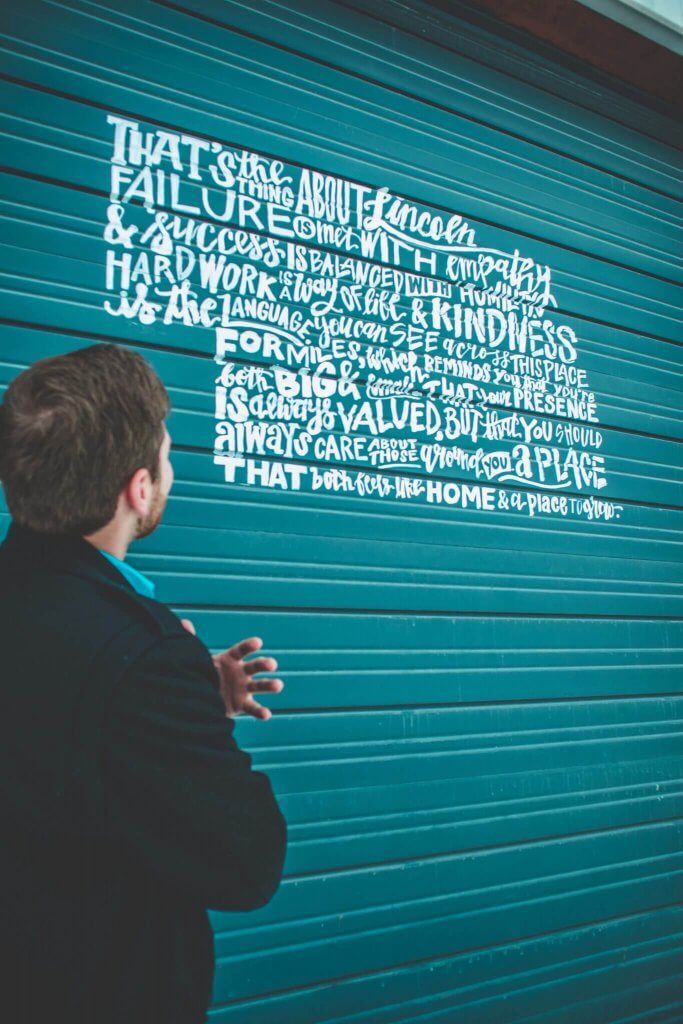 THAT'S the THING ABOUT Lincoln
FAILURE IS met WITH empathy
& success IS BALANCED WITH HUMILITY
HARD WORK IS A way of life & KINDNESS
is the LANGUAGE you can SEE across THIS PLACE
FOR MILES, which REMINDS you that you're
both BIG & small THAT your PRESENCE
IS always VALUED, BUT that YOU SHOULD
always CARE ABOUT THOSE around YOU a PLACE
THAT both feels like HOME & a place TO grow.